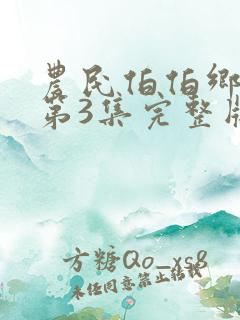 農民伯伯鄉
第3集完整版
方糖Qo_xs8
未任同意禁止结载